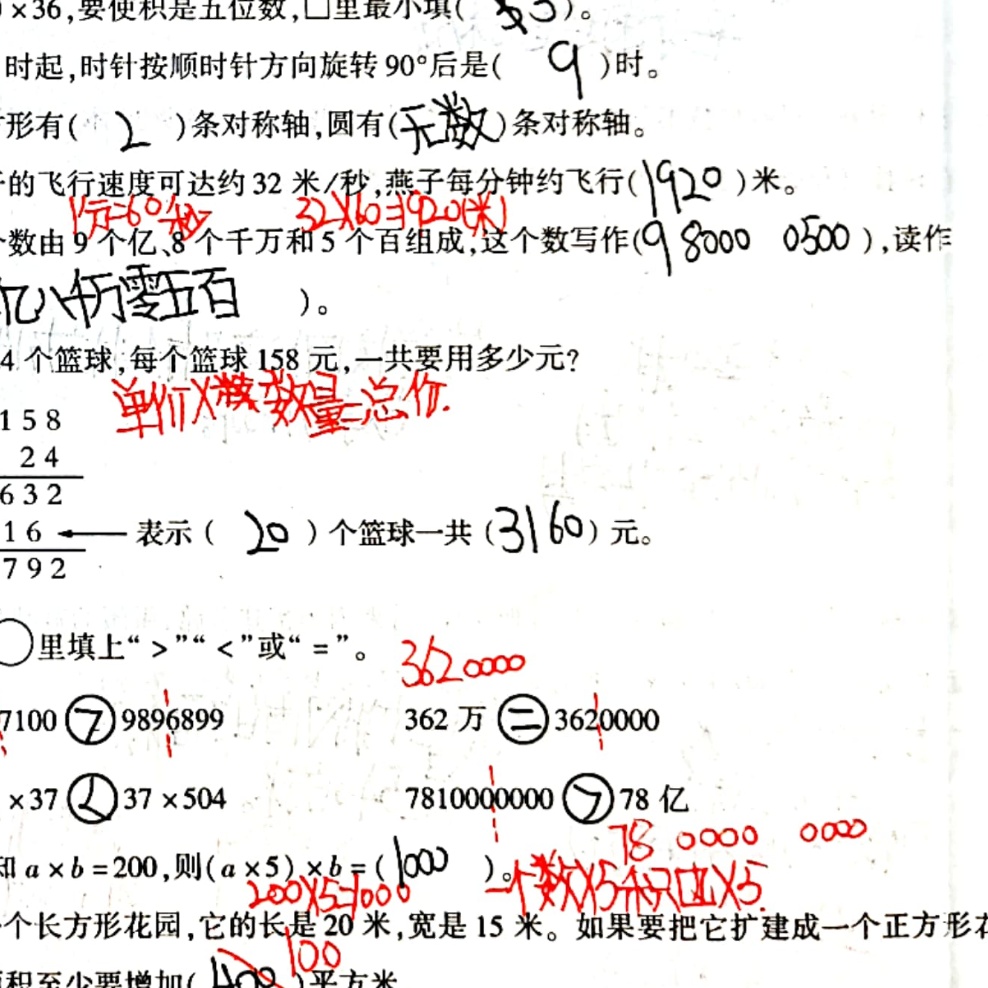 ×36,要使积是五位数,□里最小填( 3 )。
时起,时针按顺时针方向旋转90°后是( 9 )时。
形有( 2 )条对称轴,圆有(无数)条对称轴。
的飞行速度可达约32米/秒,燕子每分钟约飞行(1920)米。
1分=60秒 32×60=1920(米)
数由9个亿、8个千万和5个百组成,这个数写作(9 8000 0500),读作
亿八千万零五百 )。
4个篮球,每个篮球158元,一共要用多少元?
单价×数量=总价.
158
24
632
16 ← 表示( 20 )个篮球一共(3160)元。
792
○里填上“>”“<”或“=”。
3620000
7100 > 9896899 362万 = 3620000
×37 < 37×504 7810000000 > 78亿
78 0000 0000
知a×b=200,则(a×5)×b=(1000 )。
200×5=1000 一个数×5 积只×5.
个长方形花园,它的长是20米,宽是15米。如果要把它扩建成一个正方形花
100
积至少要增加(400)平方米